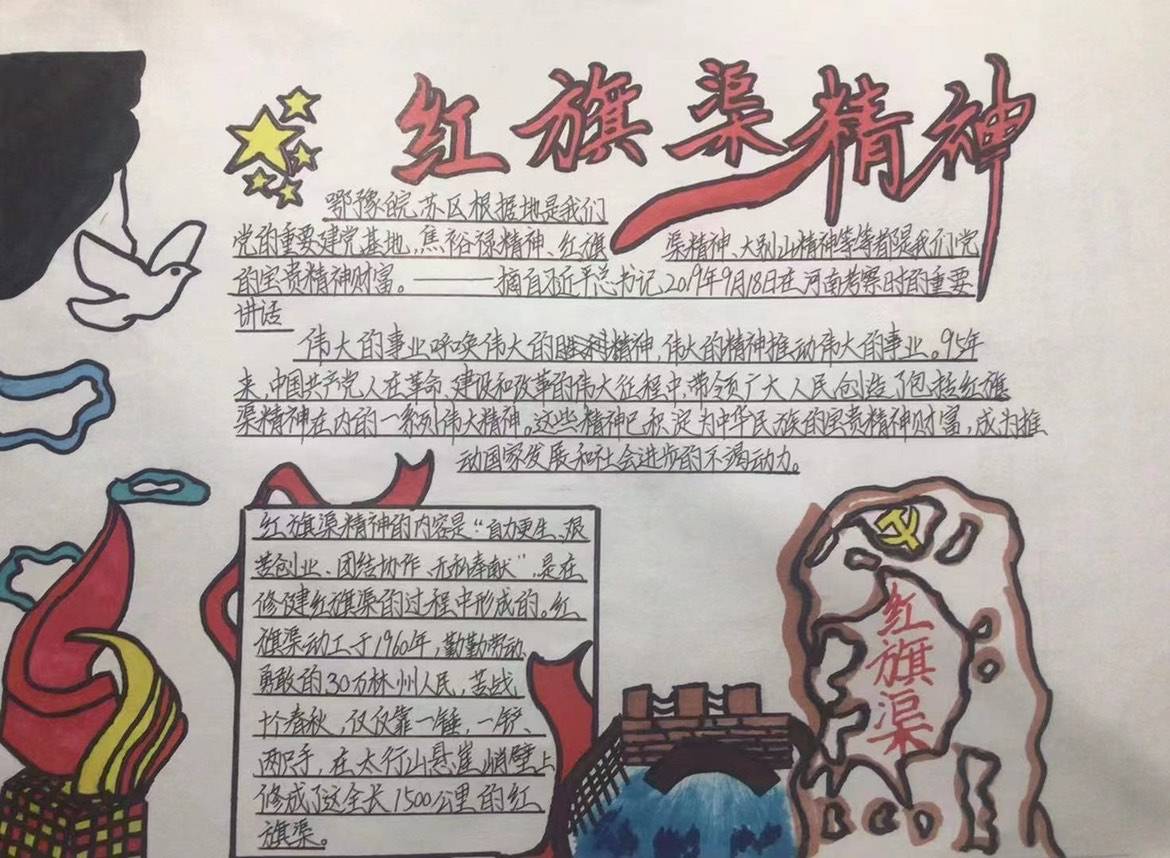 红旗渠精神
鄂豫皖苏区根据地是我们
党的重要建党基地,焦裕禄精神、红旗渠精神、大别山精神等等都是我们党
的宝贵精神财富。———摘自习近平总书记2019年9月18日在河南考察时的重要
讲话
伟大的事业呼唤伟大的精神,伟大的精神推动伟大的事业。95年
来,中国共产党人在革命、建设和改革的伟大征程中,带领广大人民创造了包括红旗
渠精神在内的一系列伟大精神。这些精神已积淀为中华民族的宝贵精神财富,成为推
动国家发展和社会进步的不竭动力。
红旗渠精神的内容是“自力更生、艰
苦创业、团结协作、无私奉献”,是在
修建红旗渠的过程中形成的。红
旗渠动工于1960年,勤勤劳动、
勇敢的30万林州人民,苦战
十个春秋,仅仅靠一锤,一铲、
两只手,在太行山悬崖峭壁上
修成了这全长1500公里的红
旗渠。
红旗渠